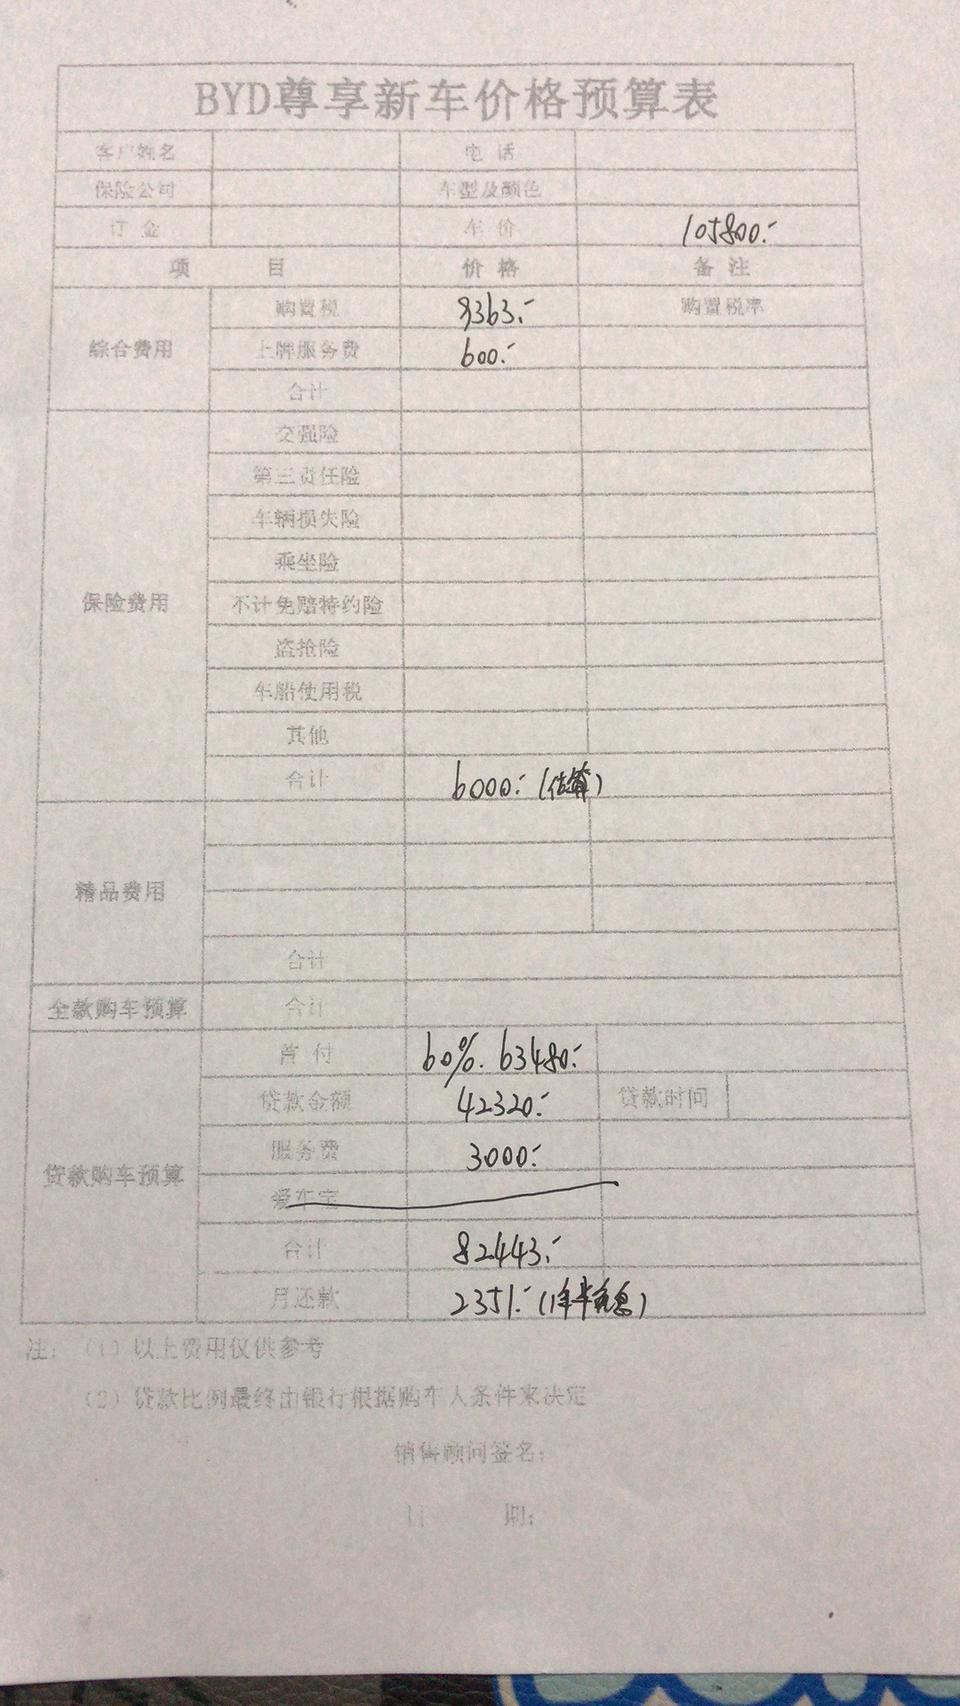 BYD尊享新车价格预算表
客户姓名 电 话
保险公司 车型及颜色
订 金 车 价 105800.-
项 目 价 格 备 注
综合费用 购置税 9363.- 购置税率
上牌服务费 600.-
合计
保险费用 交强险
第三责任险
车辆损失险
乘坐险
不计免赔特约险
盗抢险
车船使用税
其他
合计 6000.-(估算)
精品费用
合计
全款购车预算 合计
贷款购车预算 首 付 60%. 63480.-
贷款金额 42320.- 贷款时间
服务费 3000.-
爱车宝
合计 82443.-
月还款 2351.-(1年半免息)
注:(1)以上费用仅供参考
(2)贷款比例最终由银行根据购车人条件来决定
销售顾问签名:
日 期: